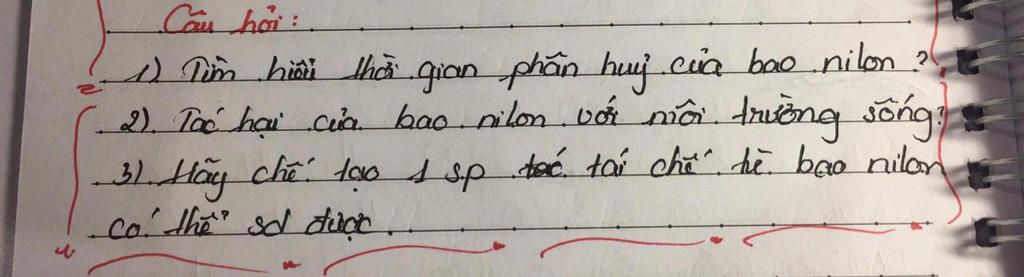 Câu hỏi:
1) Tìm hiểu thời gian phân huỷ của bao nilon?
2) Tác hại của bao nilon với môi trường sống?
3) Hãy chế tạo 1 sp tái chế từ bao nilon
có thể sd được.